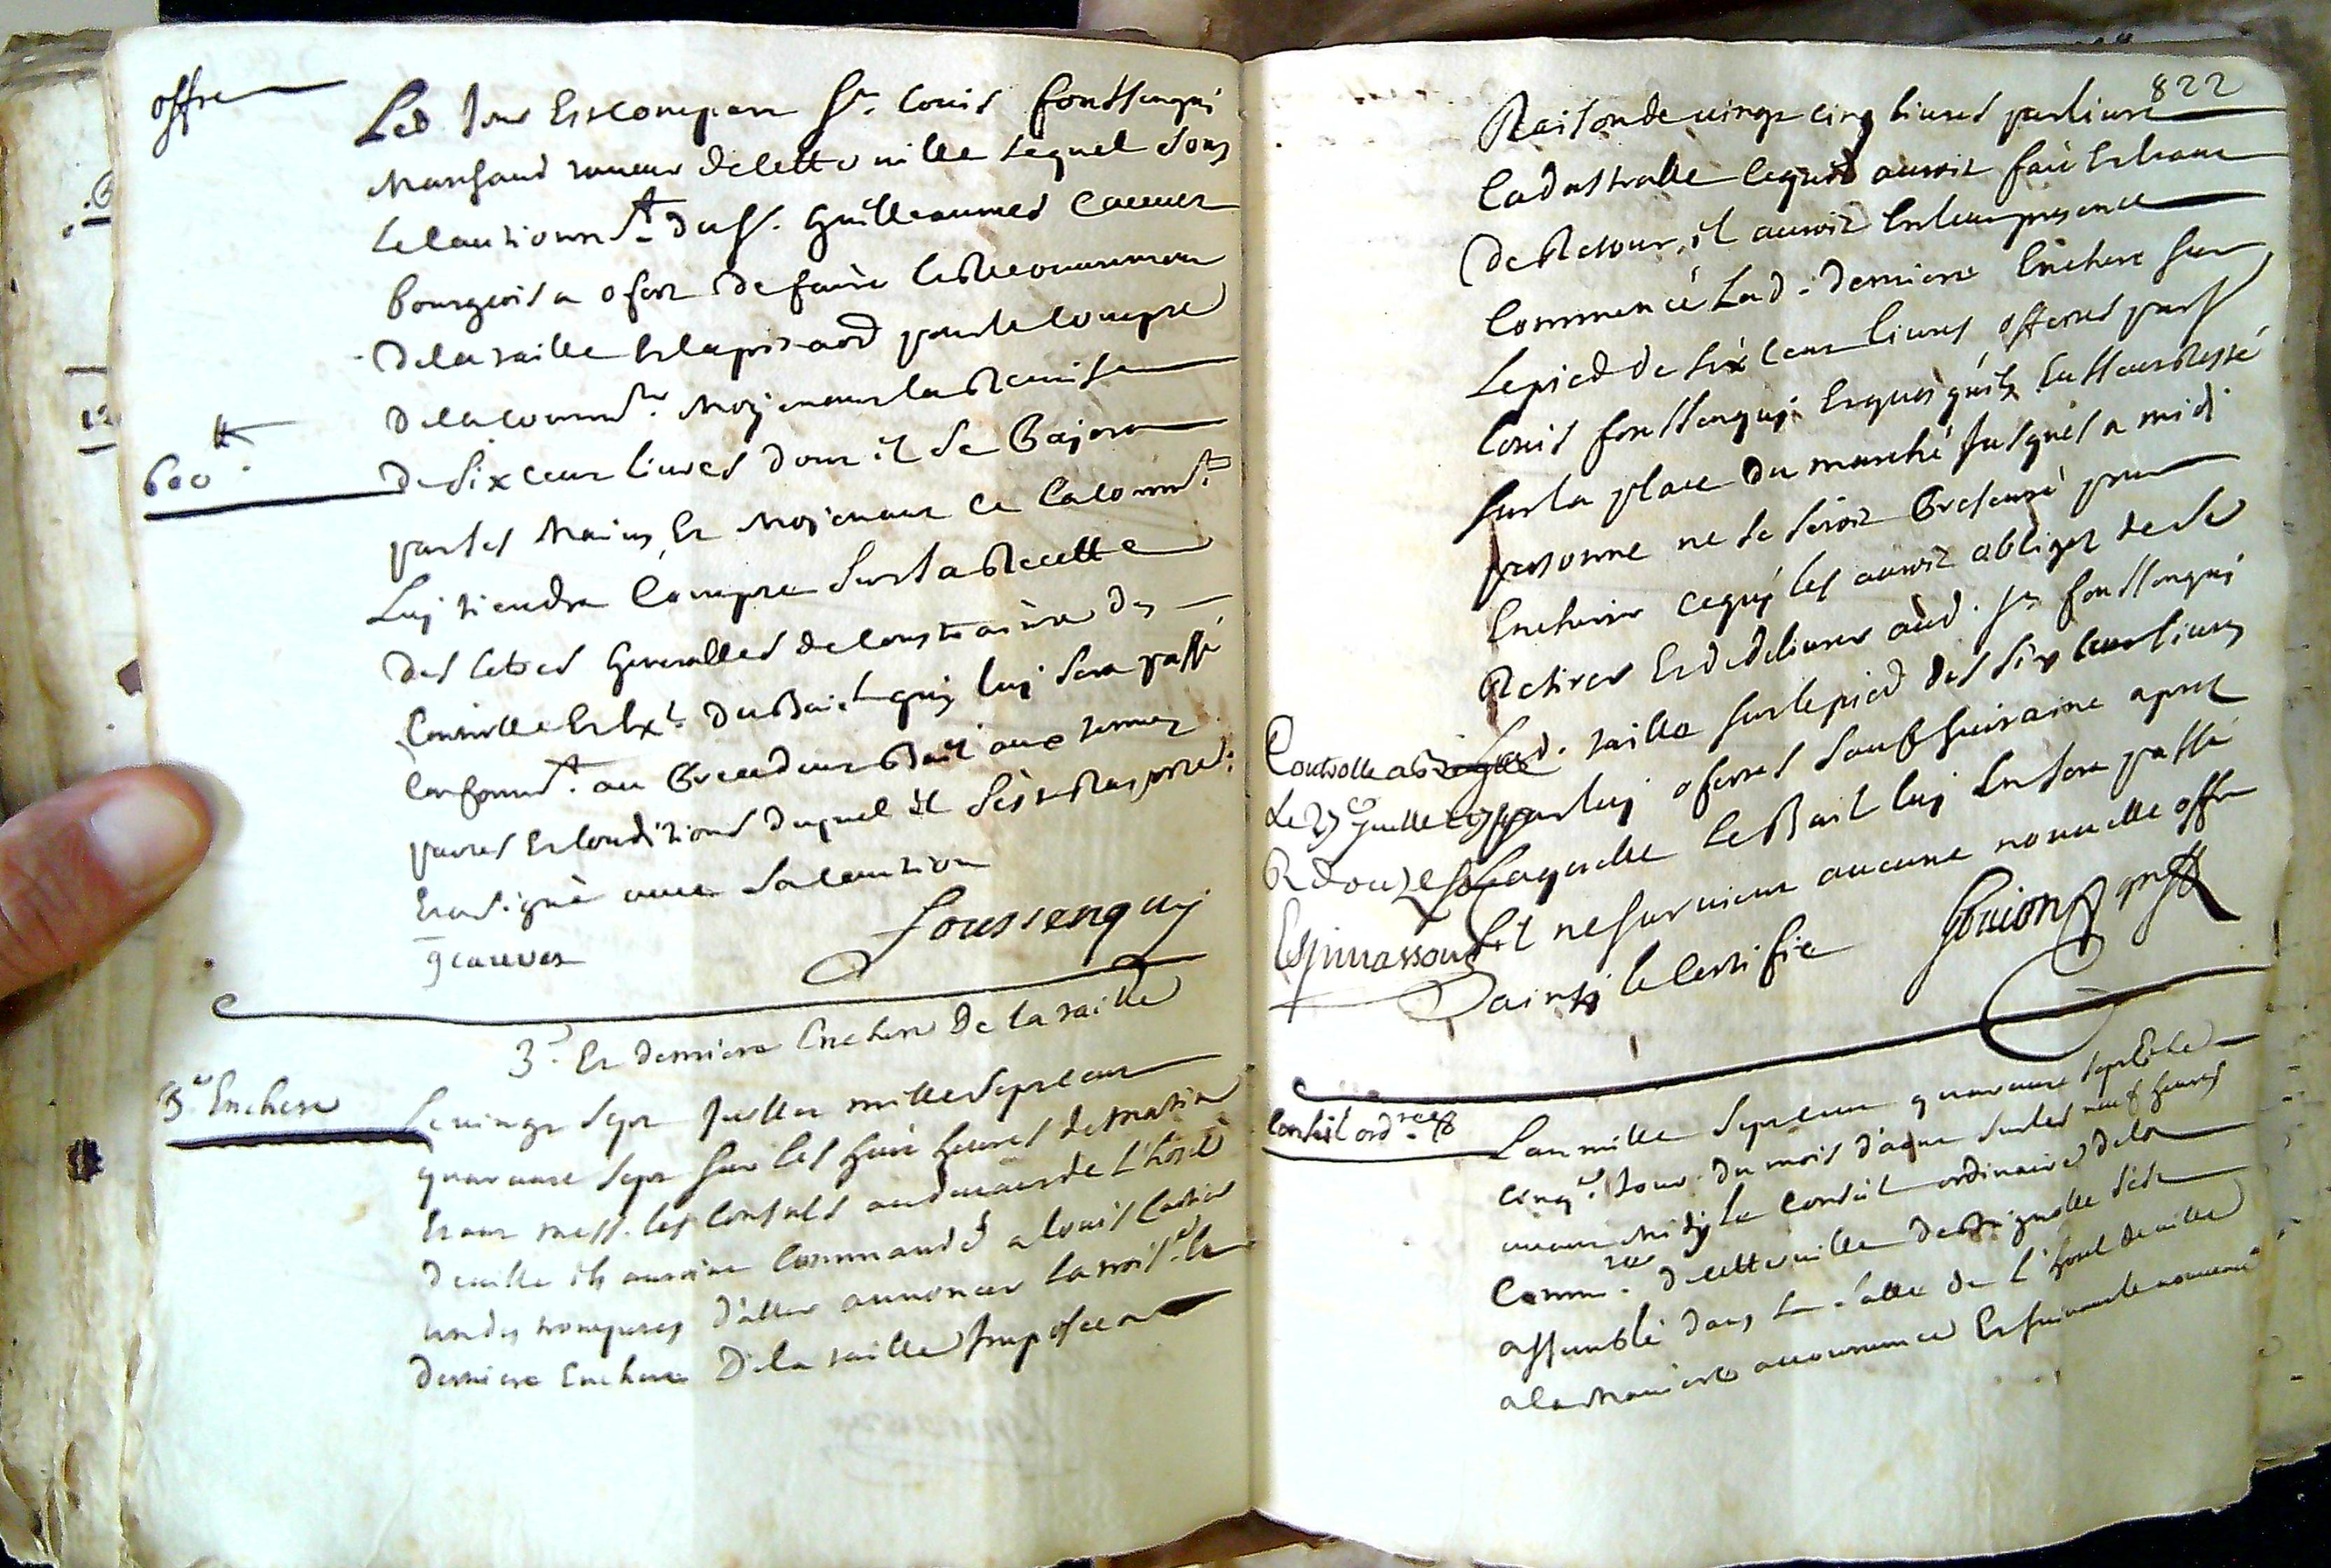 offre
Led. Jour Est comparu Sr. Louis foussenqui
Marchand taneur de cette ville lequel sous
le cautionnt. du Sr. Guilleaumes Caueuer
bourgeois a ofert de faire le Recouuremen
de la taille Et la pris aud. pour le compte
de la commté. Moyenant la Remise
600 ₶.
de six cens liures dont il se Payera
par ses Mains, Et Moyenant ce la commté.
Luy tiendra Compte sur sa Recette
des Cottes Generalles de Contrainte des
Controlle Et Ext. du Bail quy luy sera passé
Conformt. au Precedent Bail aux termes
pactes Et Conditions duquel il s'est Rapporté.
Et a signé auec sa caution
Foussenquy
g caueuer
3e. Et derniere Enchere de la taille
3e Enchere
Le vingt sept Juillet mille sept cent
quarante sept sur les huit heures de matin
Etant mess. les Consuls au deuant de l'hotel
de ville ils auroint Commandé a Louis
un des trompetes d'aller annoncer la troise. Et
derniere Enchere De la taille Imposée a
822
Raison de vingt cinq liures par liure
Cadastralle lequel auroit fait Et tant
De Retour, il auroit En leur presence
Commencé Lad. derniere Enchere sur
Le pied de six Cent liures offertes par Sr
Louis foussenquy. Et quoi qu'ils Eussent Resté
sur la place du marché Jusques a midi
personne ne se seroit Presenté pour
Encherir ce quy les auroit obliger de se
Retirer Et de deliurer aud. Sr foussenqui
Lad. taille sur le pied des six cens liures
par luy ofertes sauf huitaine apres
Laquelle le Bail luy En sera passé
s'il ne suruient aucune nouuelle offre
Controlle a Brignolle
Le 27e Juillet 1747
R douze s
Espinassous
D'ainsi le Certifie
Conseil ordre.
L'an mille sept cens quarante sept Et le
cinqe. Jour du mois d'aout sur les neuf heures
auant Midy le Conseil ordinaire de la
Commté. de cette ville de Brignolle s'est
assemblé dans la salle de l'hotel de ville
a la Maniere accoutumée Et suiuant le nouueau